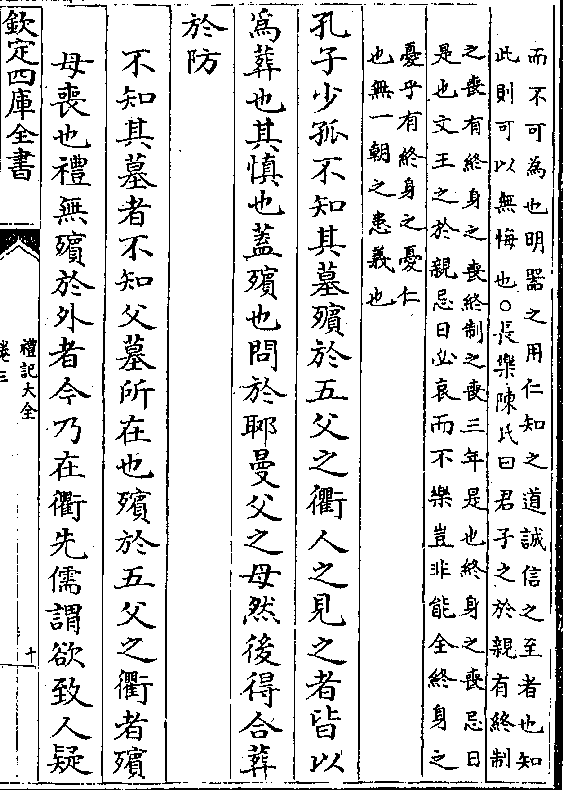 而不可為也明器之用仁知之道誠信之至者也知
此則可以無悔也○長樂陳氏曰君子之於親有終制
之喪有終身之喪終制之喪三年是也終身之喪忌日
是也文王之於親忌日必哀而不樂豈非能全終身之
憂乎有終身之憂仁
也無一朝之患義也
孔子少孤不知其墓殯於五父之衢人之見之者皆以
爲葬也其慎也蓋殯也問於耶曼父之母然後得合葬
於防
不知其墓者不知父墓所在也殯於五父之衢者殯
母喪也禮無殯於外者今乃在衢先儒謂欲致人疑
欽定四庫全書
禮記大全
卷三
十